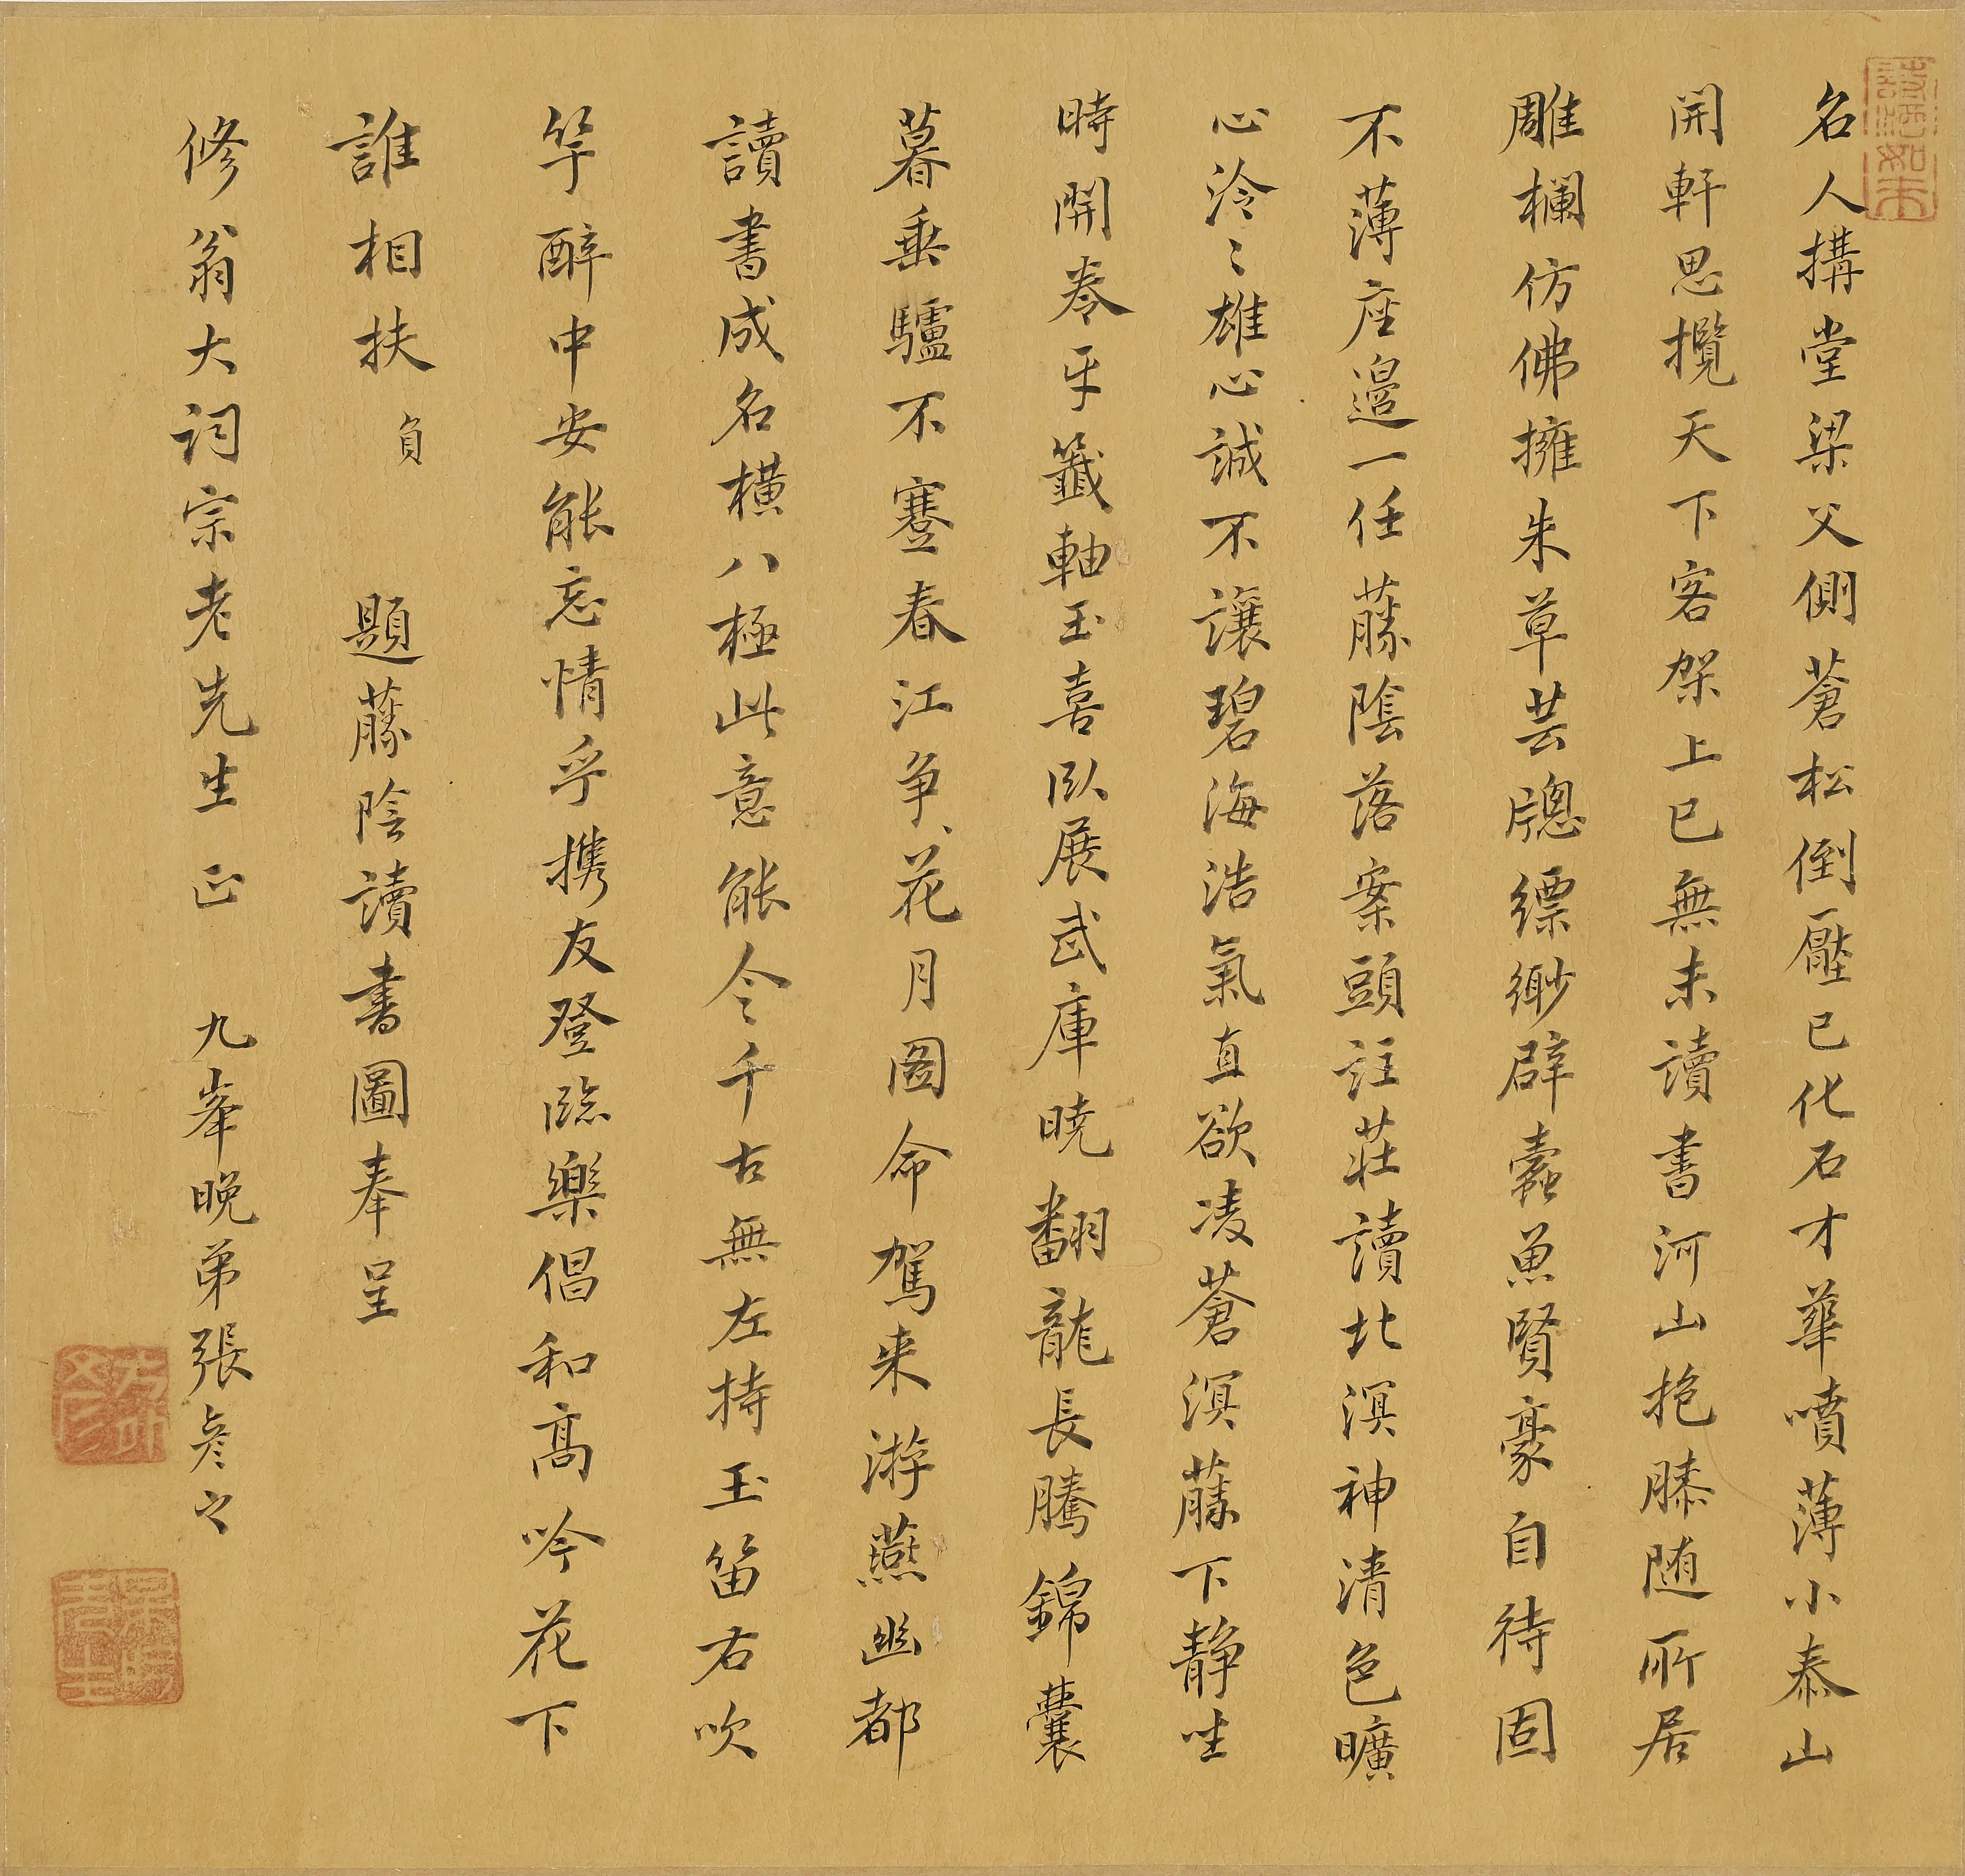 名人搆堂梁父側蒼松倒壓已化石才華噴薄小泰山
開軒思攬天下客架上已無未讀書河山抱膝随所居
雕欄仿佛擁朱草芸牕縹緲辟蠹魚賢豪自待固
不薄座邉一任藤陰落案頭註莊讀北溟神清色曠
心泠〻雄心誠不讓碧海浩氣直欲凌蒼溟藤下静坐
時開卷牙籤軸玉喜臥展武庫曉翻龍長騰錦囊
暮垂驢不蹇春江争花月图命駕来游燕幽都
讀書成名橫八極此意能令千古無左持玉笛右吹
竽醉中安能忘情乎携友登臨樂倡和高吟花下
誰相扶負 題藤陰讀書圖奉呈
修翁大詞宗老先生正 九峯晚弟張彦之